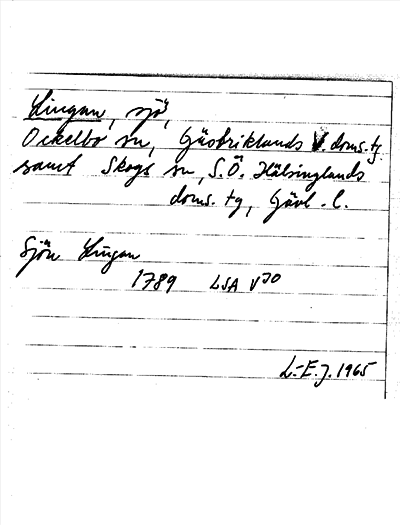 Lingan, sjö,
Ockelbo sn, Gästriklands V. doms. tg
samt Skogs sn, S.Ö. Hälsinglands
doms. tg, Gävl. l.
Sjön Lingan
1789 LSA V30
L.-E. J. 1965